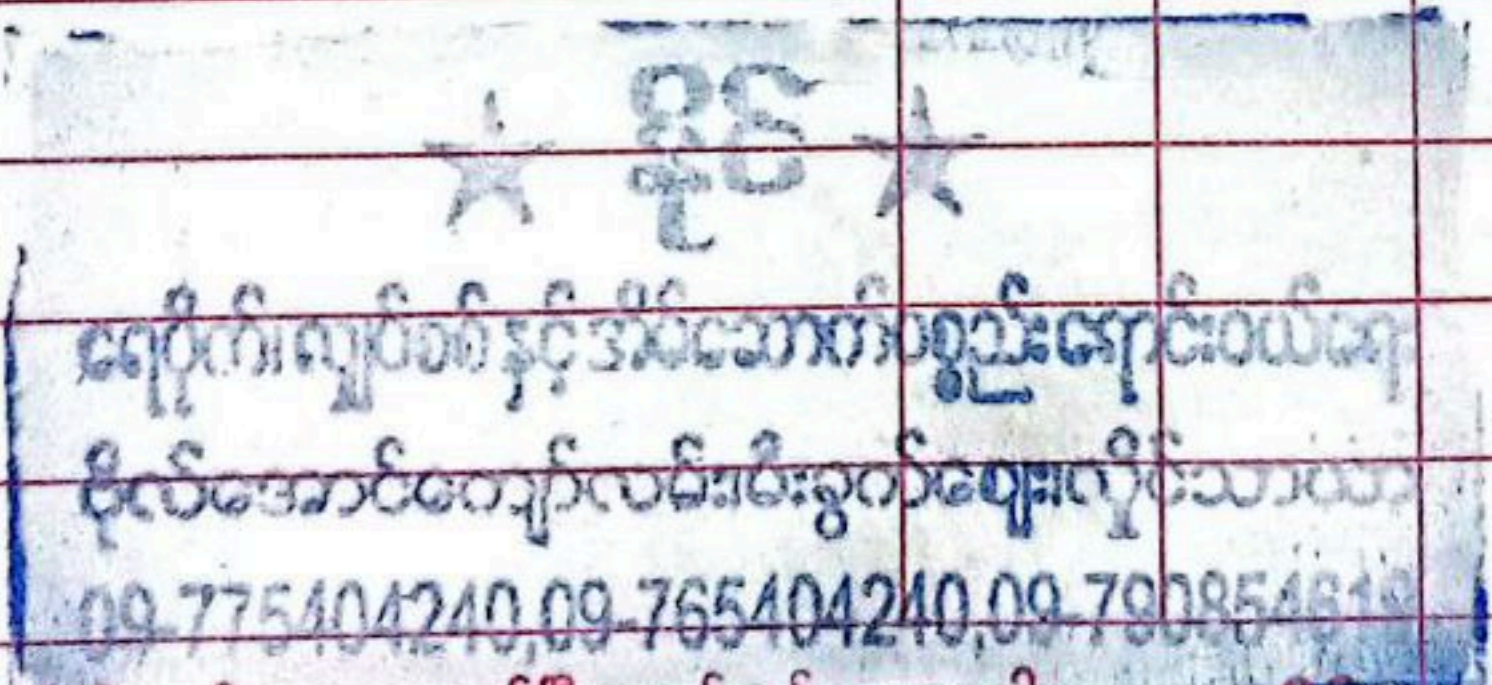 ရေပိုက်၊လျှပ်စစ်နှင့်အိမ်ဆောက်ပစ္စည်းရောင်းဝယ်ရေး
ဗိုလ်အောင်ကျော်လမ်း၊မီးခွက်ဈေး၊လှိုင်သာယာ
09-775404240,09-765404240,09-790854618